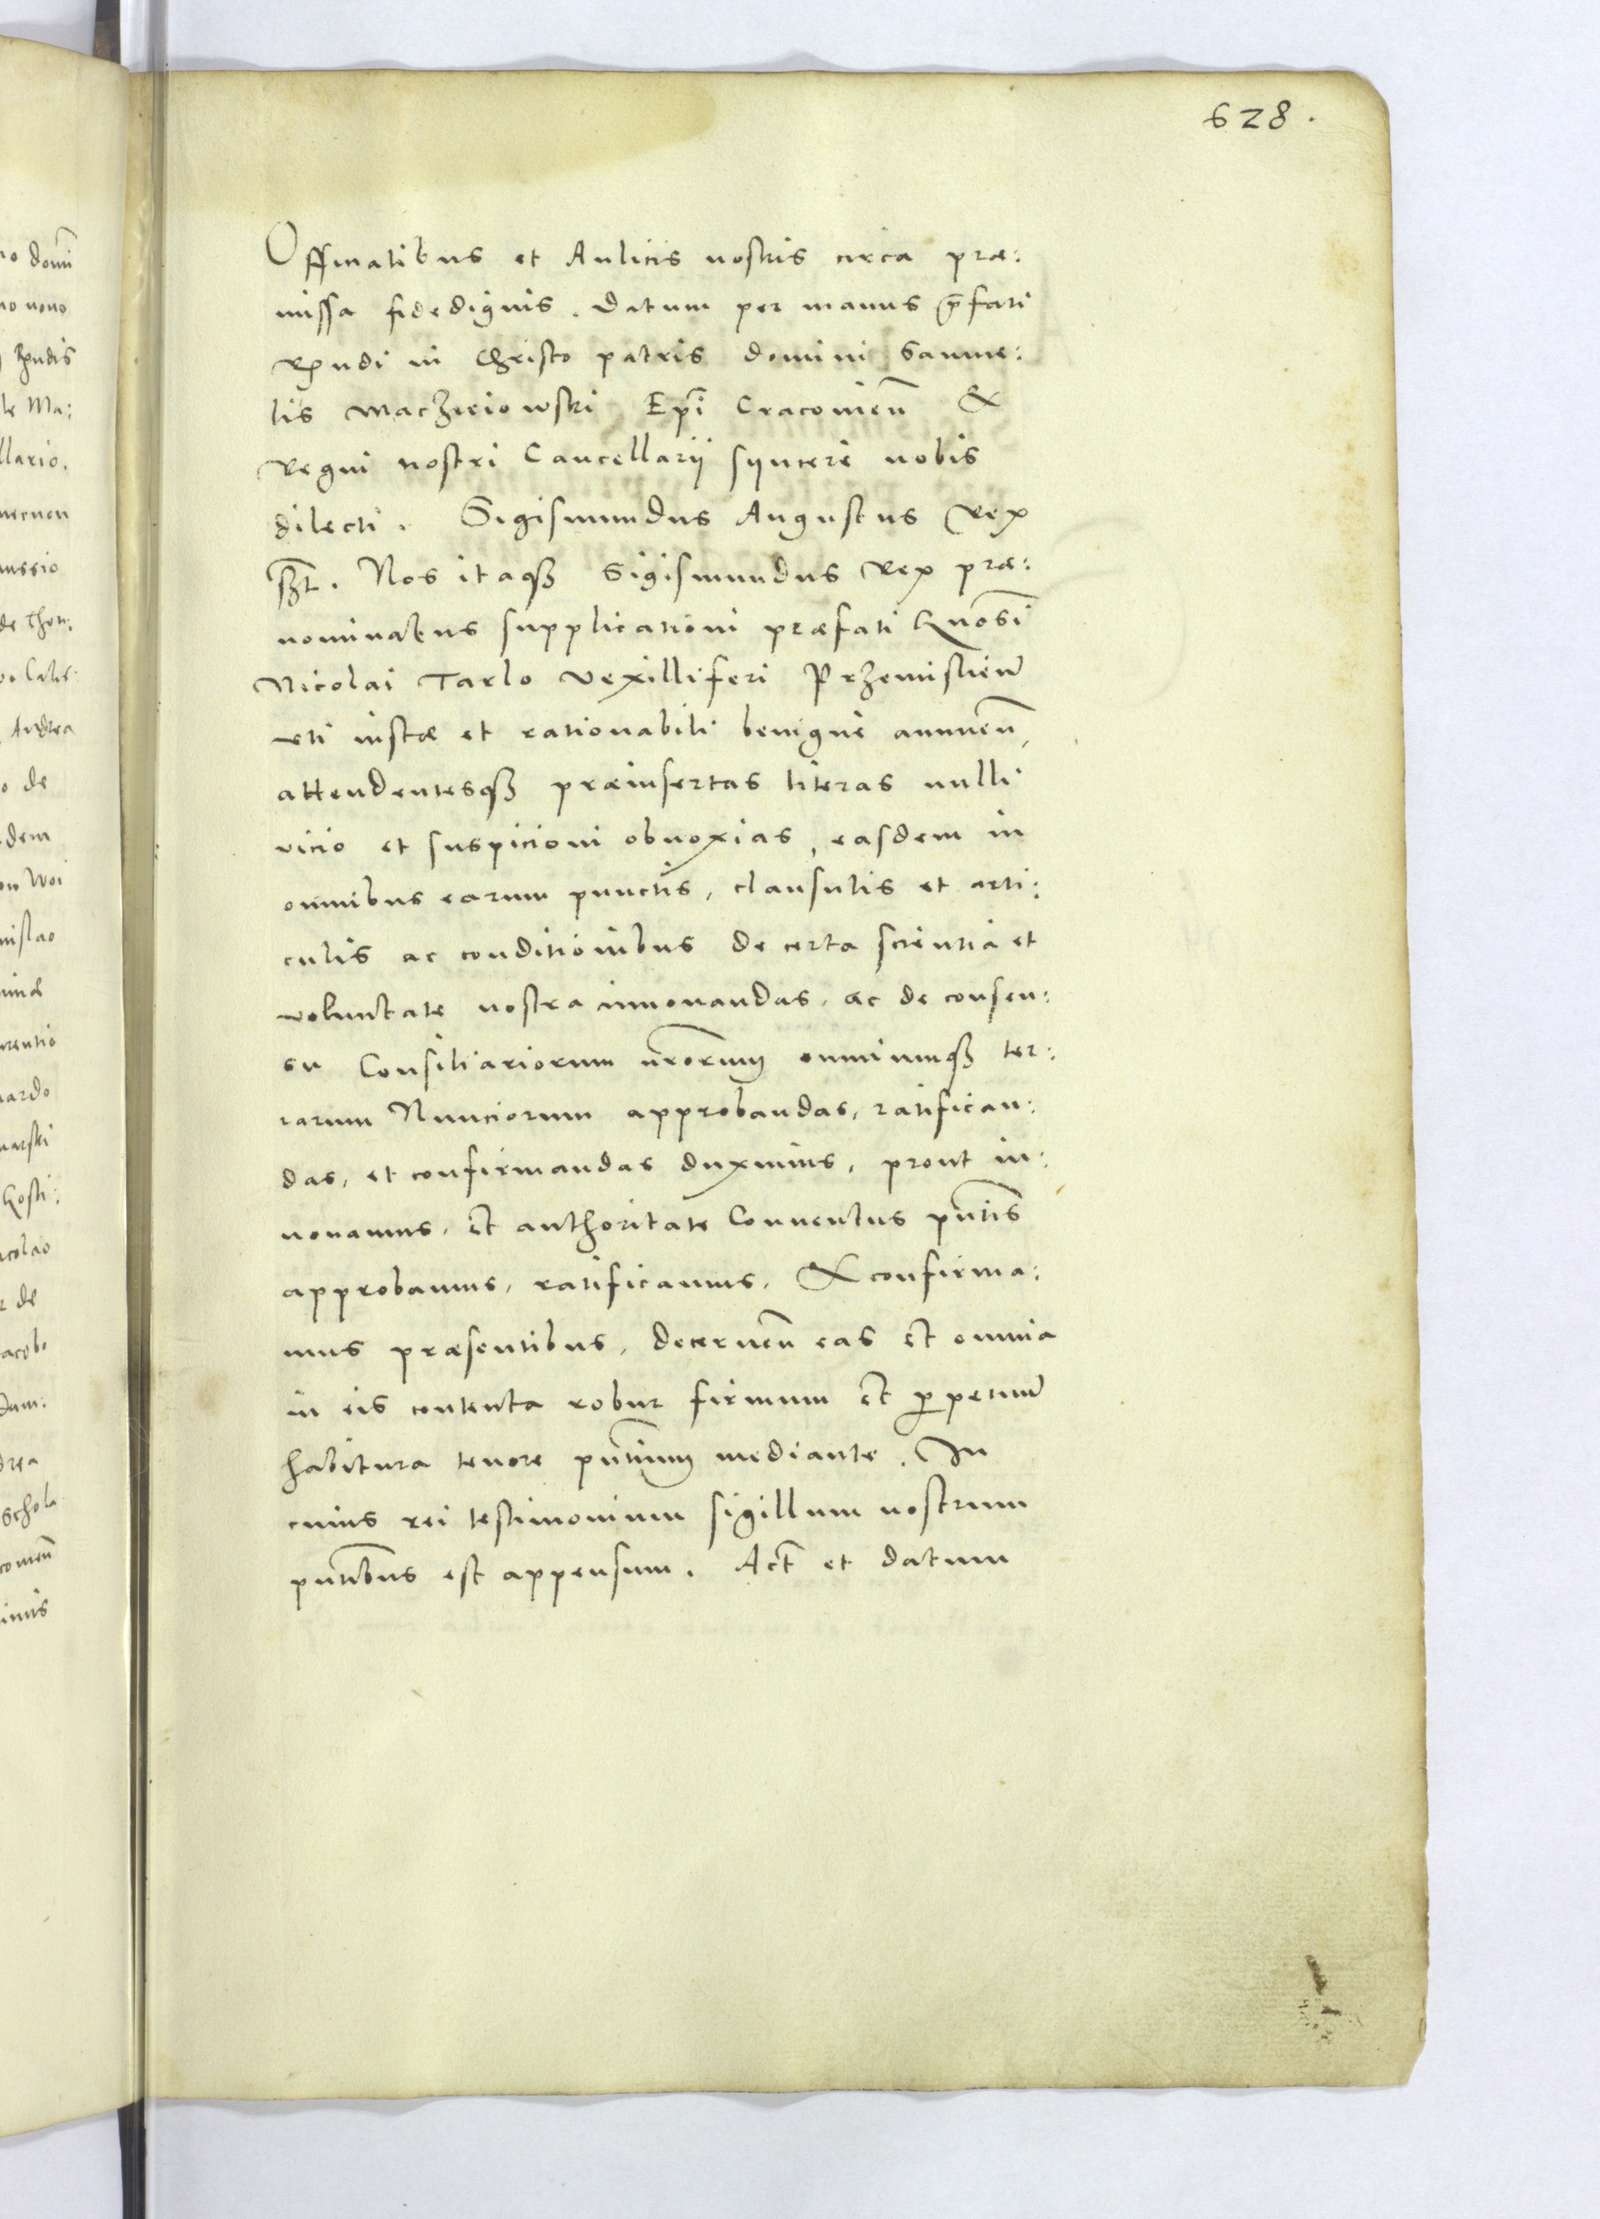 628.
Officialibus et Aulicis nostris circa præ:
missa fidedignis. Datum per manus p̄fati
Rn̄di in Christo patris domini Samue:
lis Maczieiowski Ep̄i Cracovien̄ &
Regni nostri Cancellarii syncere nobis
dilecti. Sigismundus Augustus Rex
sszt. Nos itaqꝫ Sigismundus Rex præ:
nominatus supplicationi præfati Gn̄osi
Nicolai Tarlo Vexilliferi Przemislien̄
uti iustæ et rationabili benigne annuen̄,
attendentesqꝫ præinsertas literas nulli
vicio et suspicioni obnoxias, easdem in
omnibus earum punctis, clausulis et arti:
culis ac conditionibus de certa scientia et
voluntate nostra innovandas, ac de consen:
su Consiliariorum nr̄orum omniumqꝫ ter:
rarum Nunciorum approbandas, ratifican:
das, et confirmandas duximus, prout in:
novamus, et authoritate Conventus pn̄tis
approbamus, ratificamus, & confirma:
mus præsentibus, decernen̄ eas et omnia
in eis contenta robur firmum et ꝑpetuum
habitura tenore pn̄tium mediante. In
cuius rei testimonium sigillum nostrum
pn̄tibus est appensum. Act̄ et datum